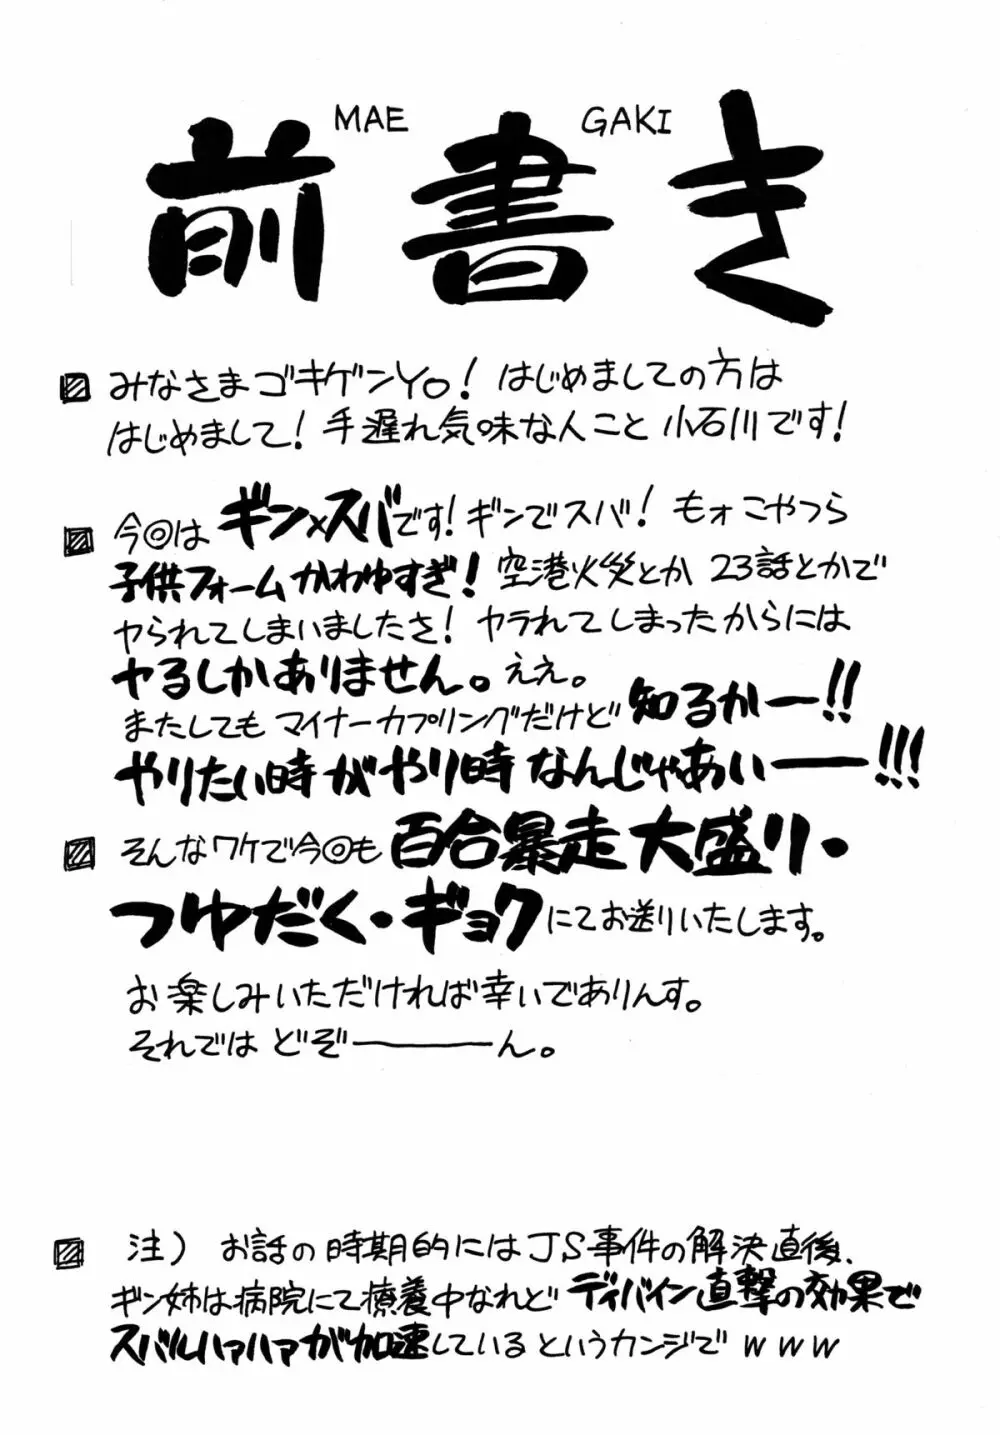 MAE GAKI
前書き
みなさまゴキゲンYo! はじめましての方は
はじめまして! 手遅れ気味な人こと 小石川です!
今回は ギン×スバです! ギンでスバ! もォこやつら
子供フォームかわゆすぎ! 空港火災とか 23話とかで
ヤられてしまいましたさ! ヤラれてしまったからには
ヤるしかありません。ええ。
またしても マイナーカプリングだけど 知るかー!!
やりたい時がやり時なんじゃあいー!!!
そんなワケで今回も 百合暴走大盛り・
つゆだく・ギョクにてお送りいたします。
お楽しみいただければ幸いでありんす。
それでは どぞーーん。
注) お話の時期的にはJS事件の解決直後、
ギン姉は病院にて療養中なれど ディバイン直撃の効果で
スバルハァハァが加速しているというカンジで www